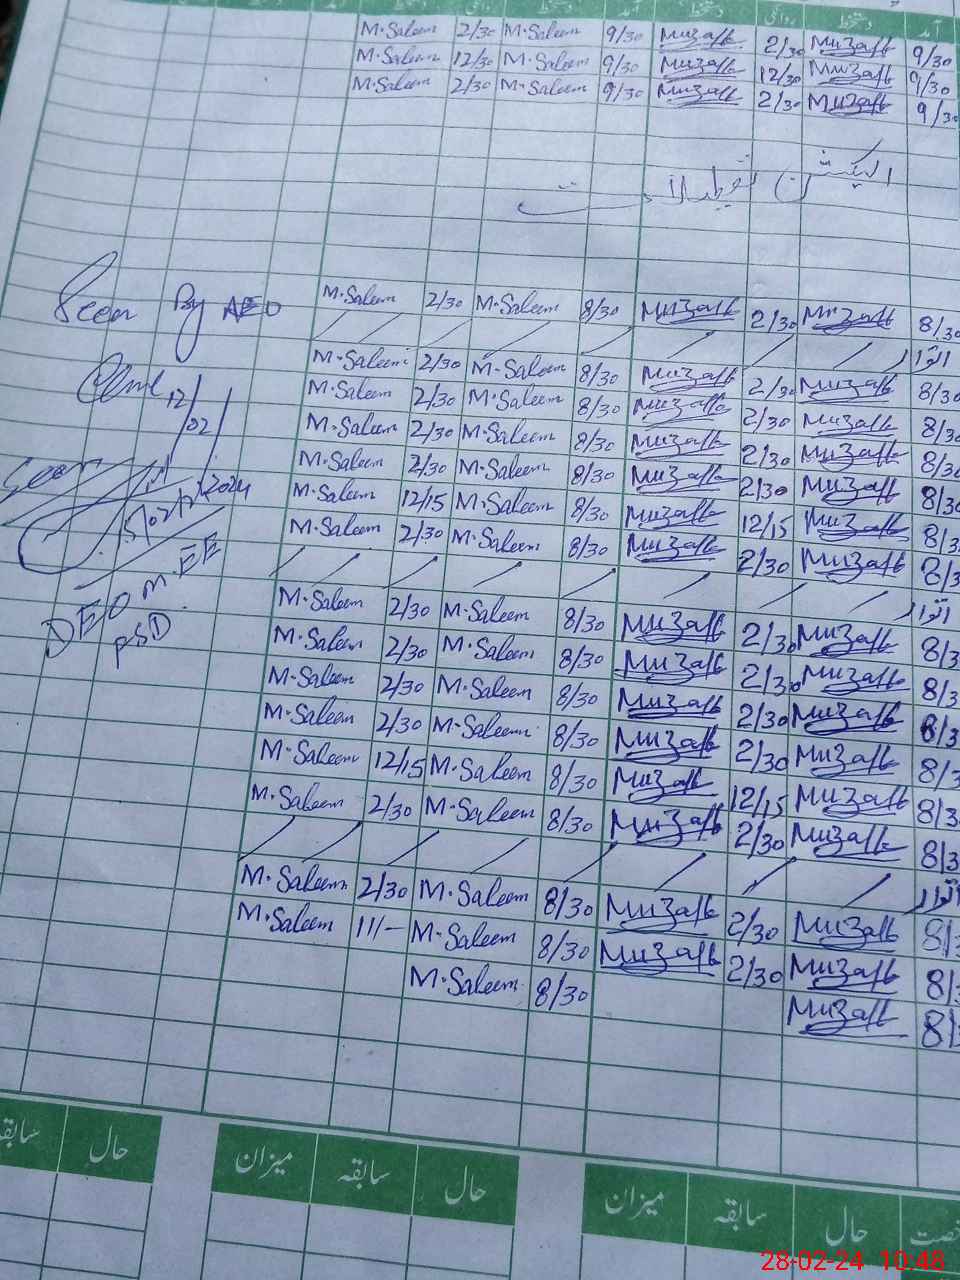 آمد دستخط روانگی دستخط آمد دستخط روانگی دستخط
M.Saleem 2/30 M.Saleem 9/30 Muzaffar 2/30 Muzaffar 9/30
M.Saleem 12/30 M.Saleem 9/30 Muzaffar 12/30 Muzaffar 9/30
M.Saleem 2/30 M.Saleem 9/30 Muzaffar 2/30 Muzaffar 9/30
الیکشن تعطیلات
M.Saleem 2/30 M.Saleem 8/30 Muzaffar 2/30 Muzaffar 8/30
اتوار
M.Saleem 2/30 M.Saleem 8/30 Muzaffar 2/30 Muzaffar 8/30
M.Saleem 2/30 M.Saleem 8/30 Muzaffar 2/30 Muzaffar 8/30
M.Saleem 2/30 M.Saleem 8/30 Muzaffar 2/30 Muzaffar 8/30
M.Saleem 2/30 M.Saleem 8/30 Muzaffar 2/30 Muzaffar 8/30
M.Saleem 12/15 M.Saleem 8/30 Muzaffar 12/15 Muzaffar 8/3
M.Saleem 2/30 M.Saleem 8/30 Muzaffar 2/30 Muzaffar 8/3
اتوار
M.Saleem 2/30 M.Saleem 8/30 Muzaffar 2/30 Muzaffar 8/3
M.Saleem 2/30 M.Saleem 8/30 Muzaffar 2/30 Muzaffar 8/3
M.Saleem 2/30 M.Saleem 8/30 Muzaffar 2/30 Muzaffar 8/3
M.Saleem 2/30 M.Saleem 8/30 Muzaffar 2/30 Muzaffar 8/3
M.Saleem 12/15 M.Saleem 8/30 Muzaffar 12/15 Muzaffar 8/3
M.Saleem 2/30 M.Saleem 8/30 Muzaffar 2/30 Muzaffar 8/3
اتوار
M.Saleem 2/30 M.Saleem 8/30 Muzaffar 2/30 Muzaffar 8/3
M.Saleem 11/- M.Saleem 8/30 Muzaffar 2/30 Muzaffar 8/3
M.Saleem 8/30 Muzaffar 8/3
Seen By AEO
12/02/2024
Seen
DEO M.EE
PSD
حال سابقہ میزان حال سابقہ میزان حال
28-02-24 10:48